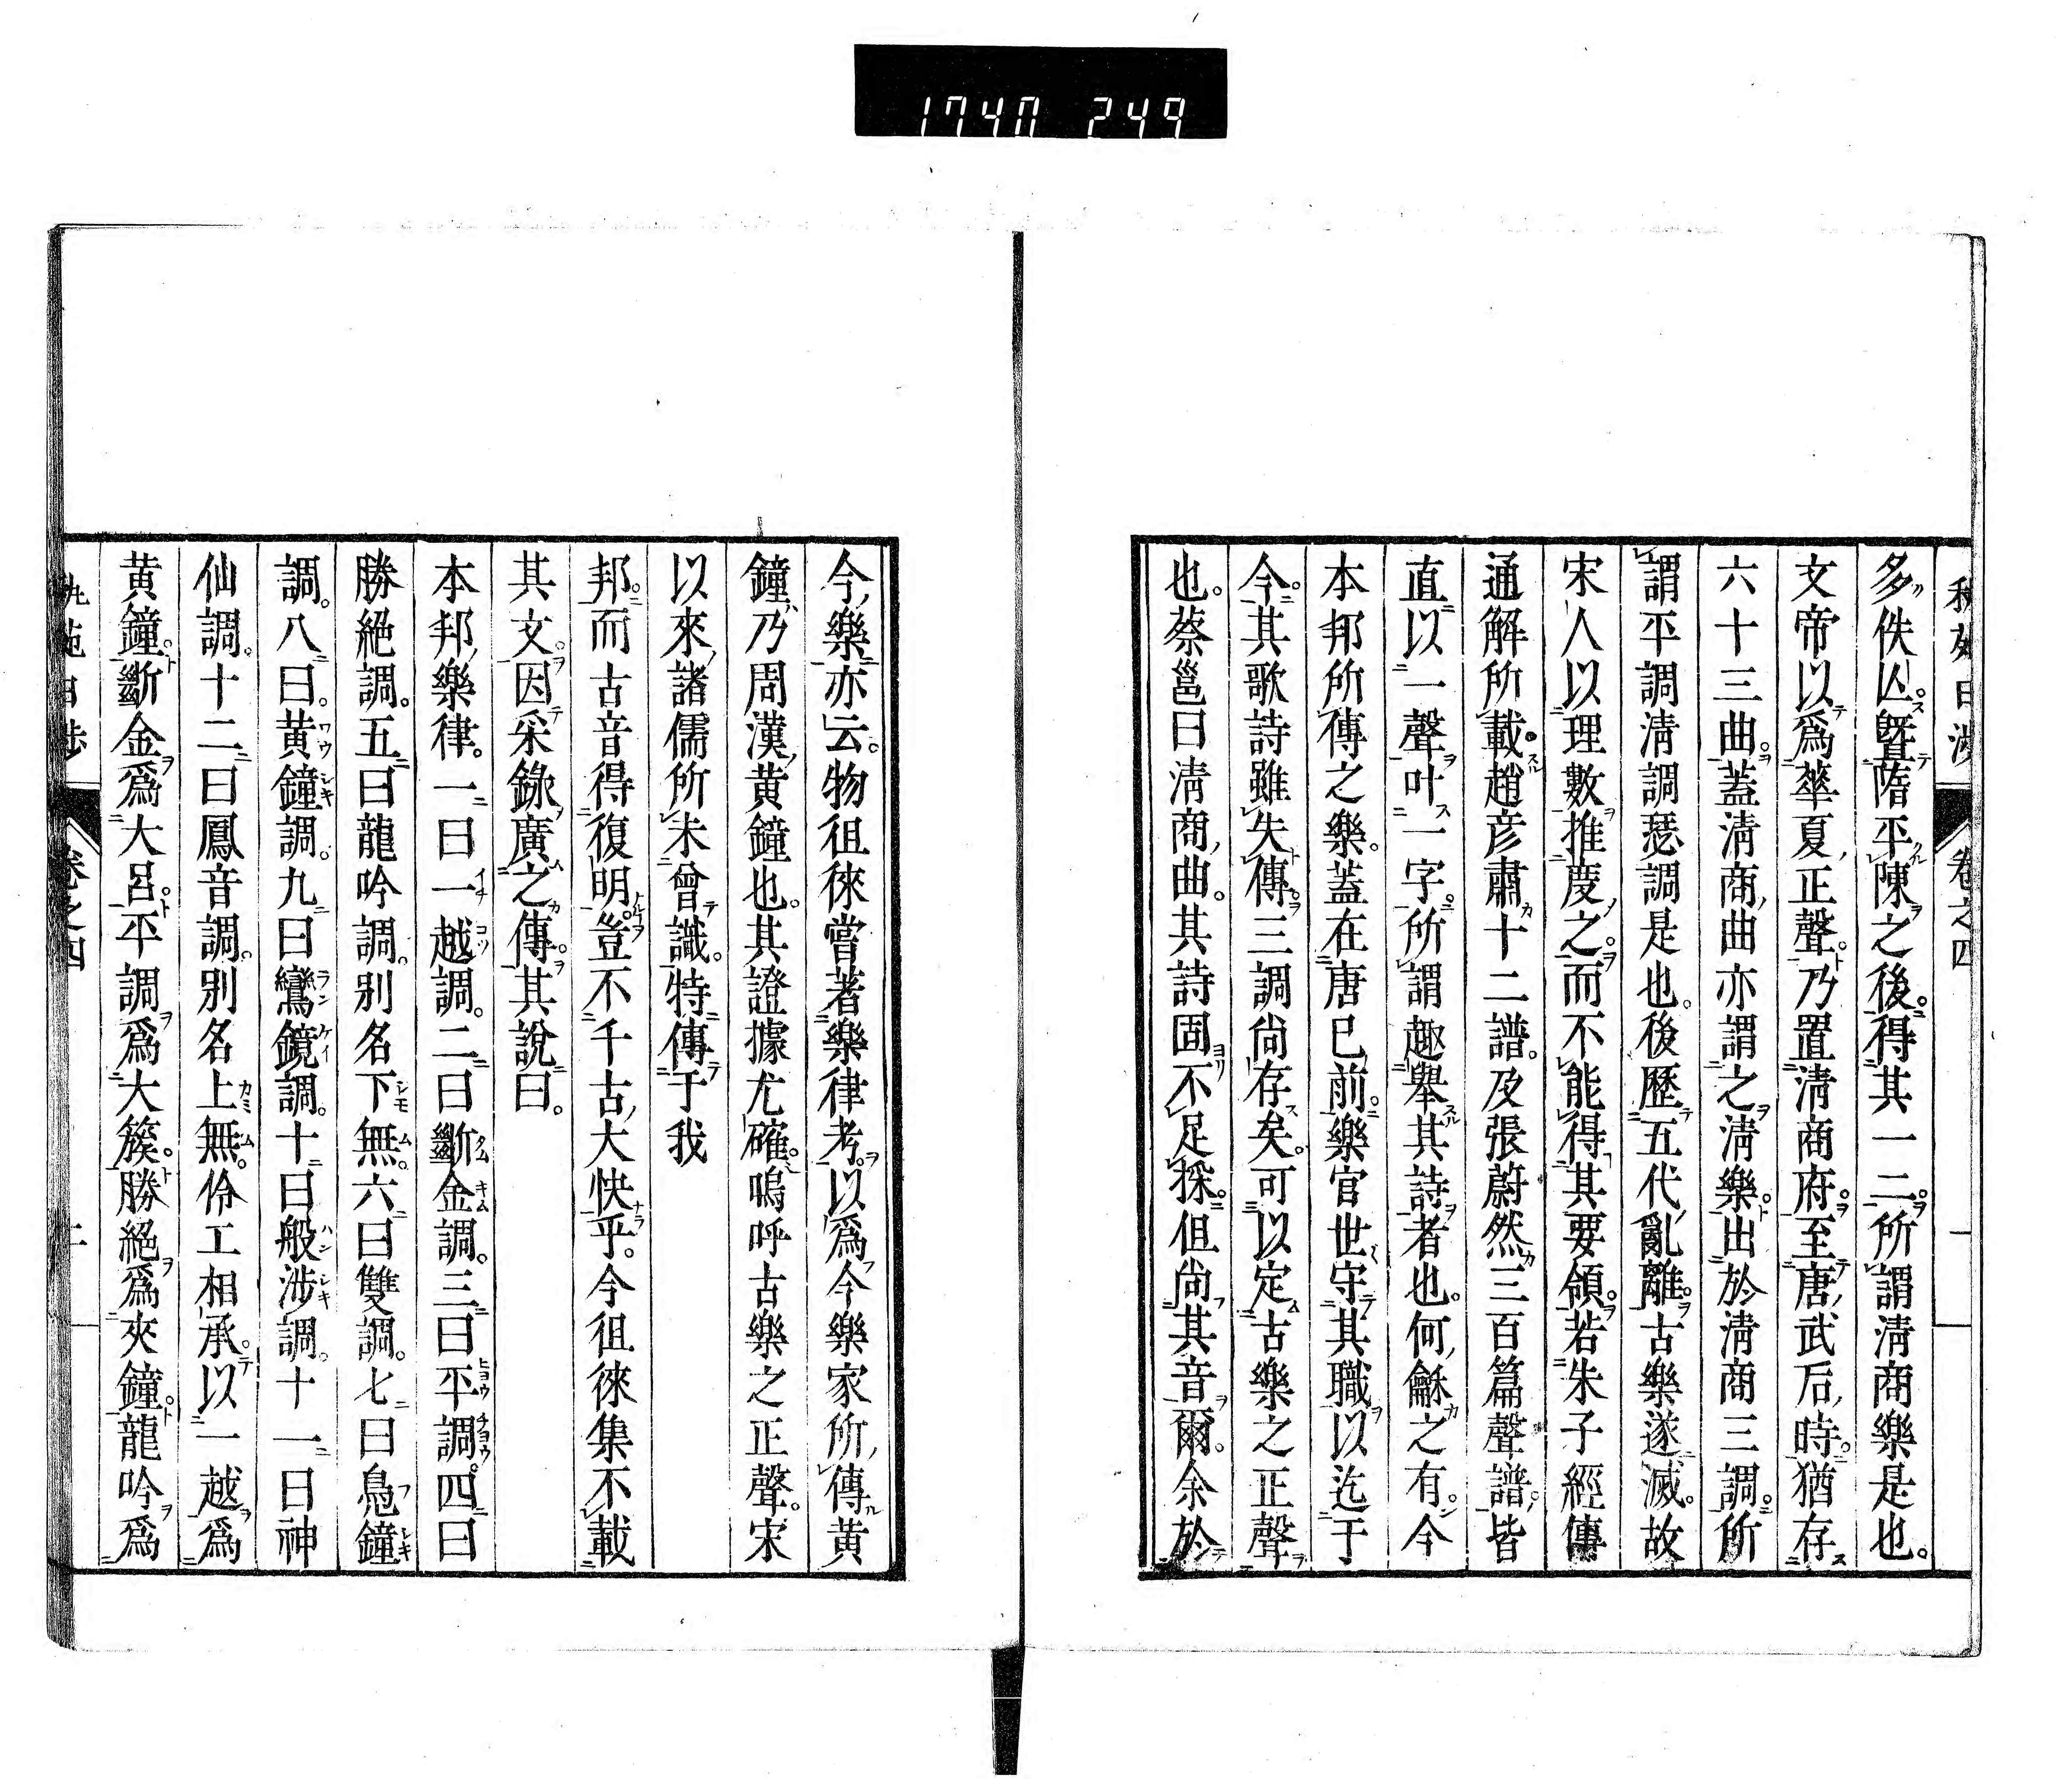 1740 249
卷之四
多佚亾。曁隋平陳之後。得其一二。所謂淸商樂是也。
文帝以爲華夏正聲。乃置淸商府。至唐武后時。猶存
六十三曲。蓋淸商曲亦謂之淸樂。出於淸商三調。所
謂平調淸調瑟調是也。後歷五代亂離。古樂遂滅。故
宋人以理數推度之。而不能得其要領。若朱子經傳
通解所載。趙彦肅十二譜。及張蔚然三百篇聲譜。皆
直以一聲叶一字。所謂趣舉其詩者也。何龢之有。今
本邦所傳之樂。蓋在唐已前。樂官世守其職。以迄于
今。其歌詩雖失傳。三調尙存矣。可以定古樂之正聲
也。蔡邕曰淸商曲。其詩固不足採。但尙其音爾。余於
今樂亦云。物徂徠嘗著樂律考。以爲今樂家所傳黃
鐘。乃周漢黃鐘也。其證據尤確。嗚呼古樂之正聲。宋
以來諸儒所未曾識。特傳于我
邦。而古音得復明。豈不千古大快乎。今徂徠集不載
其文。因采錄廣之傳。其說曰。
本邦樂律。一曰一越調。二曰斷金調。三曰平調。四曰
勝絕調。五曰龍吟調。別名下無。六曰雙調。七曰鳧鐘
調。八曰黃鐘調。九曰鸞鏡調。十曰般涉調。十一曰神
仙調。十二曰鳳音調。別名上無。伶工相承。以一越爲
黃鐘。斷金爲大呂。平調爲大簇。勝絕爲夾鐘。龍吟爲
卷之四